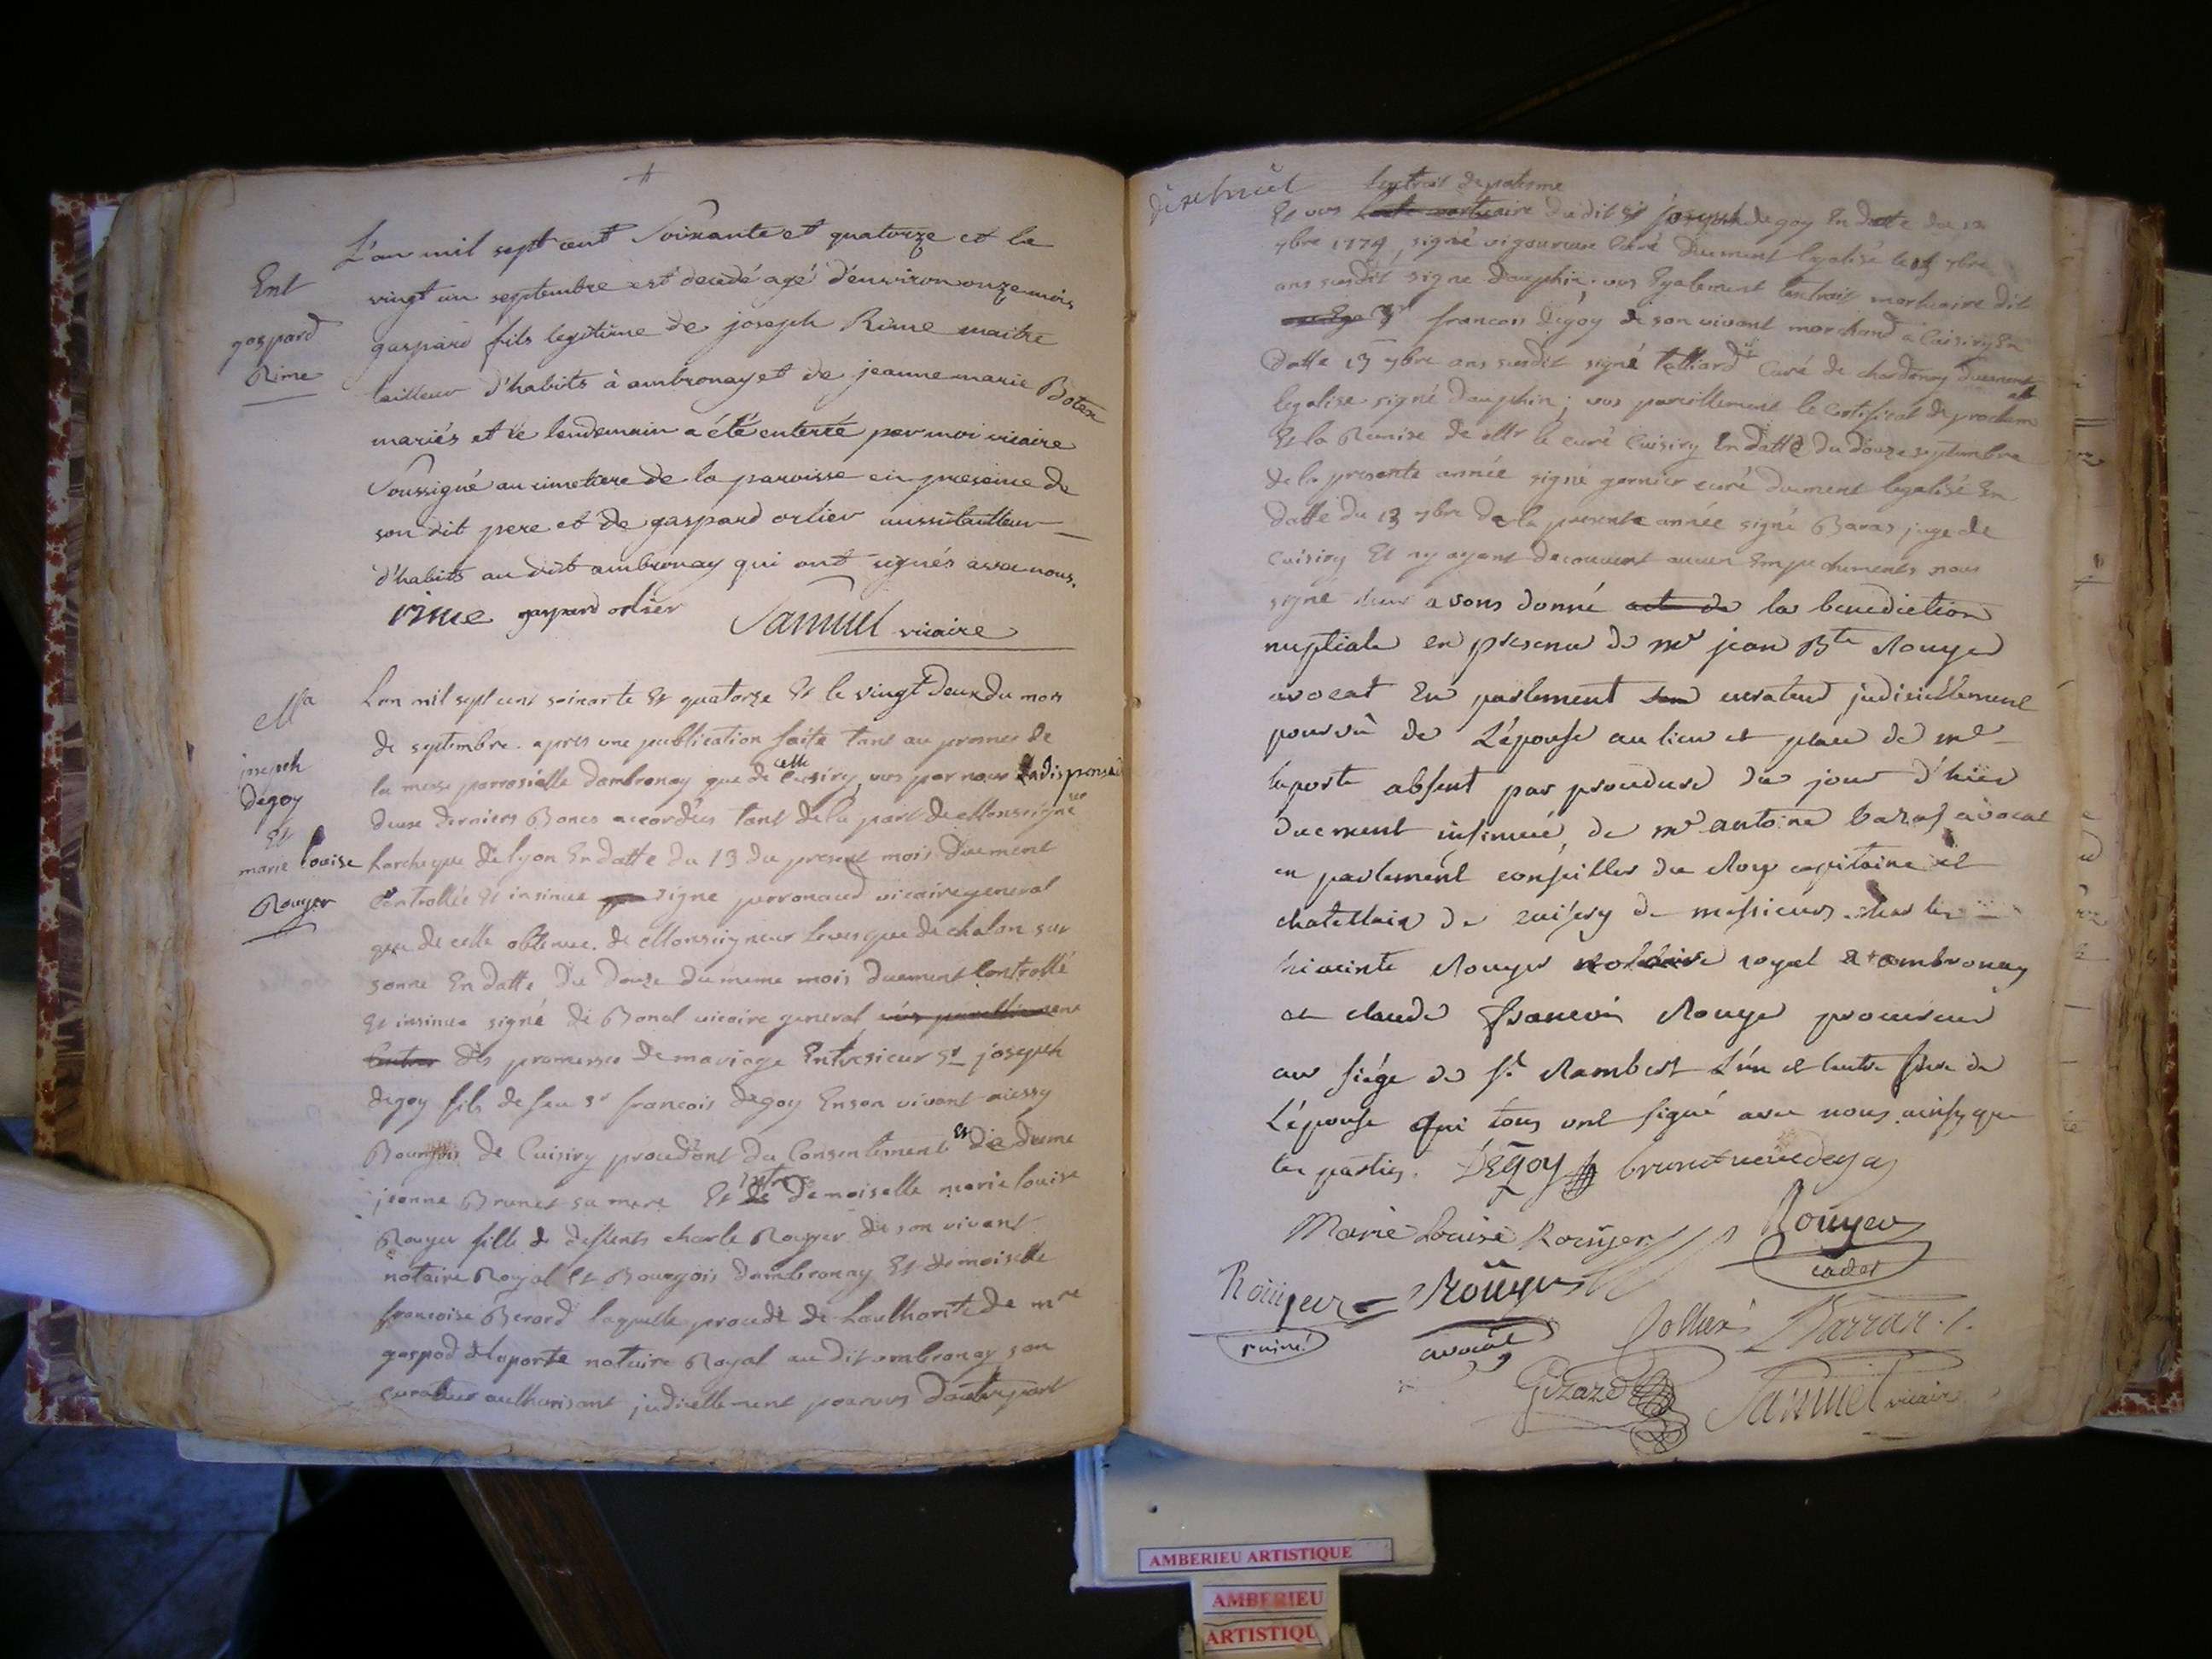 Ent
gaspard
Rime
L'an mil sept cent Soixante et quatorze et le
vingt un septembre est decedé agé d'environ onze mois
gaspard fils legitime de joseph Rime maitre
tailleur d'habits à ambronay et de jeanne marie Botex
mariés et le lendemain a été enterré par moi vicaire
Soussigné au cimetiere de la paroisse en presence de
son dit pere et de gaspard orlier aussi tailleur
d'habits au dit ambronay qui ont signés avec nous.
rime gaspard orlier Samuel vicaire
Ma
joseph
degoy
Et
marie louise
Rouyer
Lan mil sept cent soixante Et quatorze Et le vingt deux du mois
de septembre apres une publication faite tant au prones de
la messe parrosialle dambronay que de celle Cuisiry, vus par nous La dispense
deux derniers Bancs accordées tant de la part de Monseigneur
Larcheque de lyon En datte du 13 du present mois duement
Controllée Et insinue signe perronaud vicaire general
que de celle obtenue de Monseigneur Leveque de chalon sur
sonne En datte du Douze du meme mois duement Controllé
Et insinue signé de Bonal vicaire general vus pareillement
des promesses de mariage Entre sieur Sr joseph
degoy fils de feu Sr francois degoy En son vivant aussy
Bourgois de Cuisiry procedant du Consentement Et de dame
jeanne Brunet sa mere Et Demoiselle marie louise
Rouyer fille de deffents charle Rouyer de son vivant
notaire Royal Et Bourgois dambronay Et demoiselle
francoise Berard laquelle procede de Lauthorité de mre
gaspad deloporte notaire Royal au dit ambronay son
curateur authorisant judicellement pourvus Dautre part
dixhuit
Lextrait de patesme
Et vus Lacte mortuaire du dit Sr joseph degoy En datte du
7bre 1774, signé vigoureux Curé Duement legalisé le 7bre
ans susdit signe dauphin; vus Egalement Lextrait mortuaire dit
Sr francois degoy de son vivant marchand a Cuisiry En
Datte 13 7bre ans susdit signé talliard Curé de chardonay duement
legalise signé dauphin; vus pareillement le Certificat de proclam
Et la Remise de Mr le curé Cuisiry En datte du douze septembre
de la presente année signé garnier curé dument legalisé En
datte du 13 7bre de la presente année signé Baras juge de
Cuisiry Et ny ayant decouvert aucun Empechements nous
signé leur avons donné acte de la benediction
nuptiale en presence de mr jean Bte Rouyer
avocat En parlement son curateur judiciellement
pourvû de L'épouse au lieu et place de me
laporte absent par procedure du jour d'hier
duement insinuée, de mr antoine baras avocat
en parlement conseiller du Roy capitaine et
chatellain de cuisery de messieurs
hiacinte Rouyer nottaire royal a ambronay
et claude francois Rouyer procureur
au siége de St Rambert L'un et lautre frere de
L'épouse qui tous ont signé avec nous ainsy que
les parties. DEgoy brunet veuve degoy
Marie Louise Rouyer Rouyer cadet
Rouyer Rouyer
ainé avocat Barras.
Gizard Samuel vicaire
AMBERIEU ARTISTIQUE
AMBERIEU
ARTISTIQU